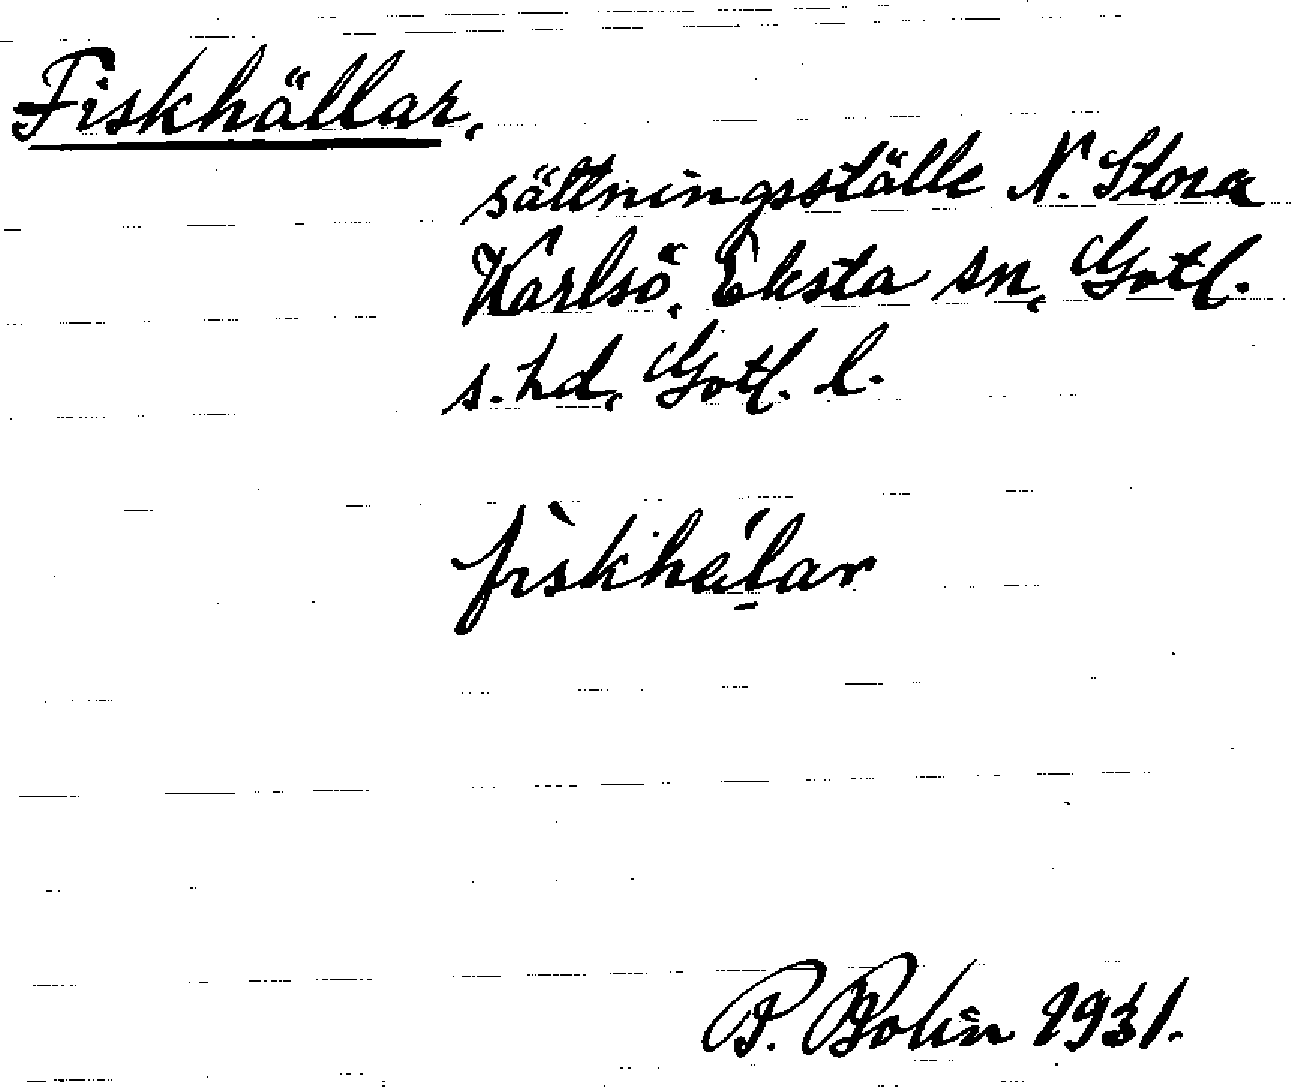 Fiskhällar,
sättningsställe N. Stora
Karlsö, Eksta sn, Gotl.
s. hd, Gotl. l.
fìskhél̠ar
P. Bolin 1931.